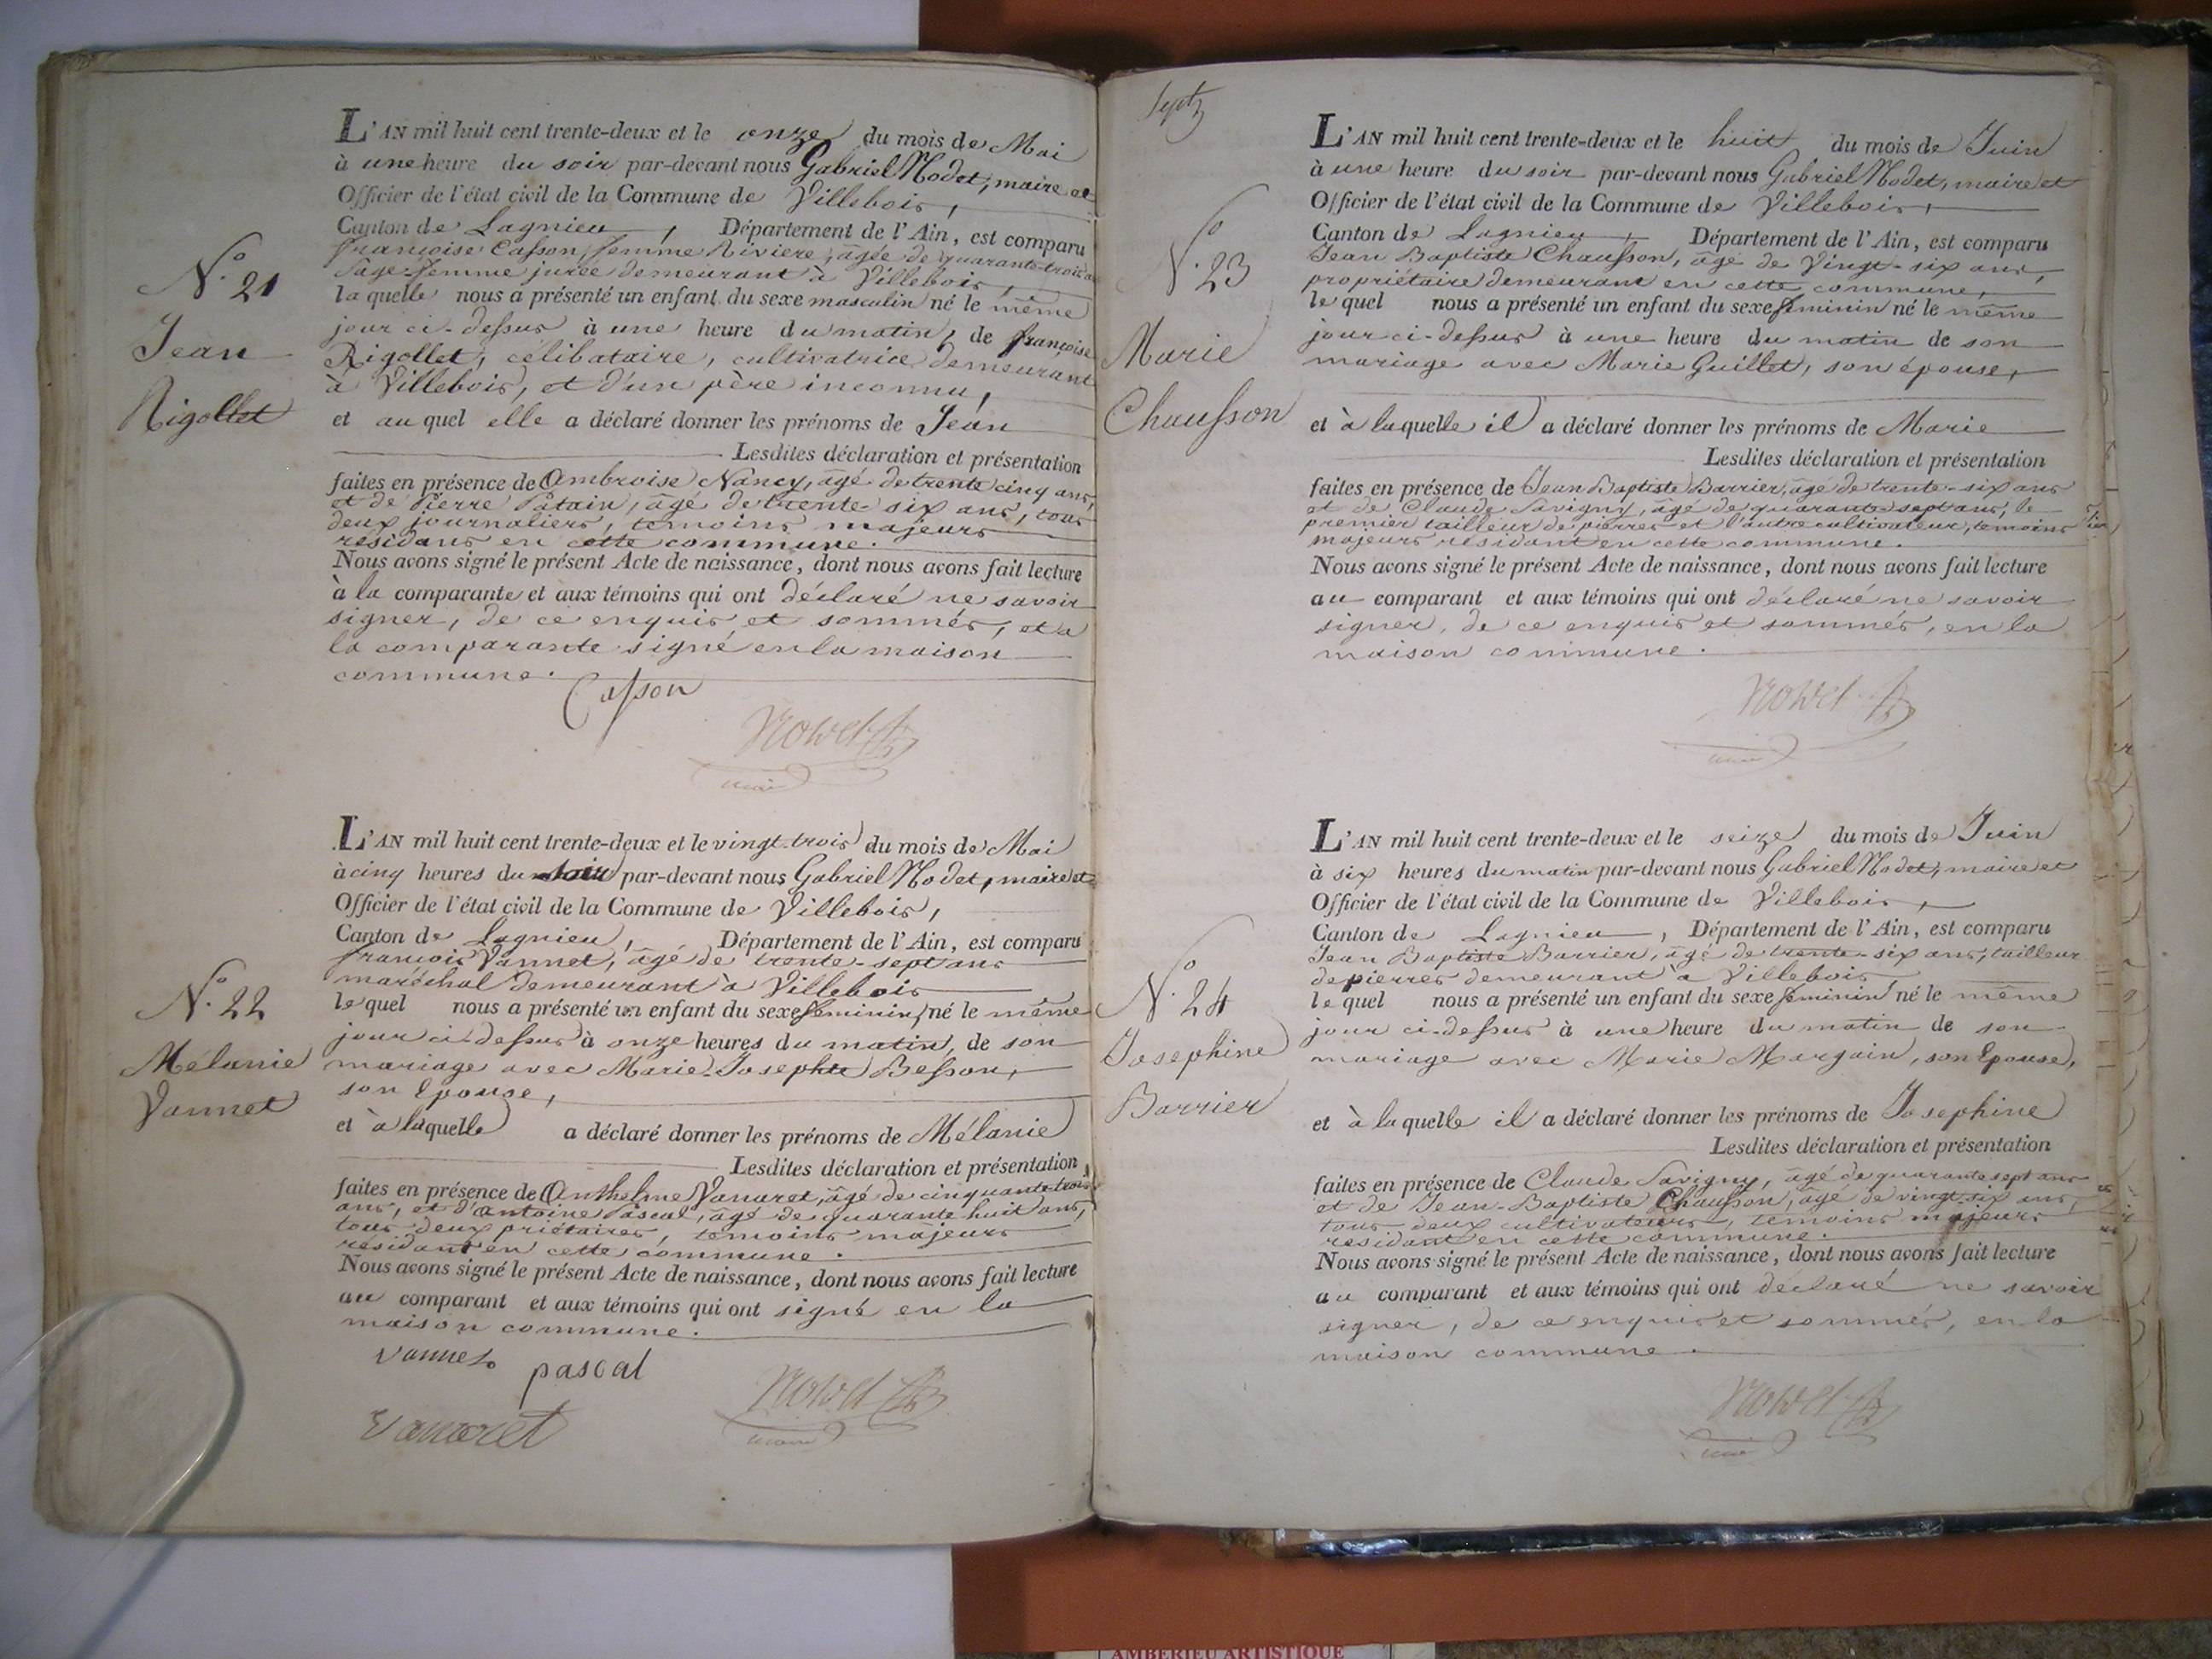 L'AN mil huit cent trente-deux et le onze du mois de Mai
à une heure du soir par-devant nous Gabriel Nodet, maire et
Officier de l'état civil de la Commune de Villebois,
Canton de Lagnieu, Département de l'Ain, est comparu
françoise Casson, femme Riviere, âgée de quarante-trois ans
Sage-femme jurée demeurant à Villebois,
la quelle nous a présenté un enfant du sexe masculin né le même
jour ci-dessus à une heure du matin, de françoise
Rigollet, célibataire, cultivatrice demeurant
à Villebois, et d'un père inconnu,
et au quel elle a déclaré donner les prénoms de Jean
Lesdites déclaration et présentation
faites en présence de Ambroise Nancy, âgé de trente cinq ans,
et de Pierre Patain, âgé de trente-six ans, tous
deux journaliers, témoins majeurs
résidans en cette commune.
Nous avons signé le présent Acte de naissance, dont nous avons fait lecture
à la comparante et aux témoins qui ont déclaré ne savoir
signer, de ce enquis et sommés, et a
la comparante signé en la maison
commune.
Casson
maire
N.o 21
Jean
Rigollet
L'AN mil huit cent trente-deux et le vingt-trois du mois de Mai
à cinq heures du soir par-devant nous Gabriel Nodet, maire et
Officier de l'état civil de la Commune de Villebois,
Canton de Lagnieu, Département de l'Ain, est comparu
françois Vannet, âgé de trente-sept ans
maréchal demeurant à Villebois
le quel nous a présenté un enfant du sexe féminin né le même
jour ci-dessus à onze heures du matin, de son
mariage avec Marie-Josephte Besson,
son Epouse,
et à laquelle a déclaré donner les prénoms de Mélanie
Lesdites déclaration et présentation
faites en présence de Anthelme Vanaret, âgé de cinquante trois
ans, et d'antoine Pascal, âgé de quarante huit ans,
tous deux priétaires, témoins majeurs
résidant en cette commune.
Nous avons signé le présent Acte de naissance, dont nous avons fait lecture
au comparant et aux témoins qui ont signé en la
maison commune.
Vannet
pascal
Vanaret
maire
N.o 22
Mélanie
Vannet
Septz
L'AN mil huit cent trente-deux et le huit du mois de Juin
à une heure du soir par-devant nous Gabriel Nodet, maire et
Officier de l'état civil de la Commune de Villebois,
Canton de Lagnieu, Département de l'Ain, est comparu
Jean Baptiste Chausson, âgé de Vingt-six ans,
propriétaire demeurant en cette commune,
le quel nous a présenté un enfant du sexe féminin né le même
jour ci-dessus à une heure du matin de son
mariage avec Marie Guillet, son épouse,
et à laquelle il a déclaré donner les prénoms de Marie
Lesdites déclaration et présentation
faites en présence de Jean Baptiste Barrier, âgé de trente-six ans
et de Claude Savigny, âgé de quarante sept ans, le
premier tailleur de pierres et l'autre cultivateur, témoins
majeurs résidant en cette commune.
Nous avons signé le présent Acte de naissance, dont nous avons fait lecture
au comparant et aux témoins qui ont déclaré ne savoir
signer, de ce enquis et sommés, en la
maison commune.
N.o 23
Marie
Chausson
L'AN mil huit cent trente-deux et le seize du mois de Juin
à six heures du matin par-devant nous Gabriel Nodet, maire et
Officier de l'état civil de la Commune de Villebois,
Canton de Lagnieu, Département de l'Ain, est comparu
Jean Baptiste Barrier, âgé de trente-six ans, tailleur
de pierres demeurant à Villebois
le quel nous a présenté un enfant du sexe féminin né le même
jour ci-dessus à une heure du matin de son
mariage avec Marie Margain, son Epouse,
et à laquelle il a déclaré donner les prénoms de Josephine
Lesdites déclaration et présentation
faites en présence de Claude Savigny, âgé de quarante sept ans
et de Jean-Baptiste Chausson, âgé de vingt-six ans,
tous deux cultivateurs, témoins majeurs
résidant en cette commune.
Nous avons signé le présent Acte de naissance, dont nous avons fait lecture
au comparant et aux témoins qui ont déclaré ne savoir
signer, de ce enquis et sommés, en la
maison commune.
N.o 24
Josephine
Barrier
AMBERIEU ARTISTIQUE